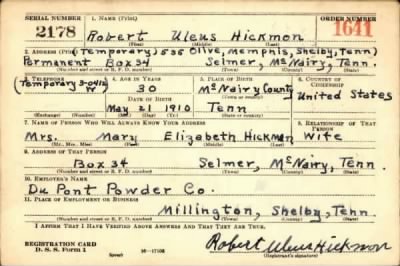 SERIAL NUMBER 1. NAME (Print) ORDER NUMBER
2178 Robert Uleus Hickmon 1641
(First) (Middle) (Last)
2. ADDRESS (Print) (Temporary) 535 Olive, Memphis, Shelby, Tenn)
Permanent Box 34 Selmer, McNairy, Tenn.
(Number and street or R. F. D. number) (Town) (County) (State)
3. TELEPHONE 4. AGE IN YEARS 5. PLACE OF BIRTH 6. COUNTRY OF CITIZENSHIP
30 McNairy County United States
DATE OF BIRTH
May 21 1910 Tenn
(Exchange) (Number) (Mo.) (Day) (Yr.) (State or country)
7. NAME OF PERSON WHO WILL ALWAYS KNOW YOUR ADDRESS 8. RELATIONSHIP OF THAT PERSON
Mrs. Mary Elizabeth Hickman Wife
(Mr., Mrs., Miss) (First) (Middle) (Last)
9. ADDRESS OF THAT PERSON
Box 34 Selmer, McNairy, Tenn.
(Number and street or R. F. D. number) (Town) (County) (State)
10. EMPLOYER'S NAME
Du Pont Powder Co.
11. PLACE OF EMPLOYMENT OR BUSINESS
Millington, Shelby, Tenn.
(Number and street or R. F. D. number) (Town) (County) (State)
I AFFIRM THAT I HAVE VERIFIED ABOVE ANSWERS AND THAT THEY ARE TRUE.
REGISTRATION CARD
D. S. S. Form 1 16—17105 Robert Uleus Hickmon
(over) (Registrant's signature)